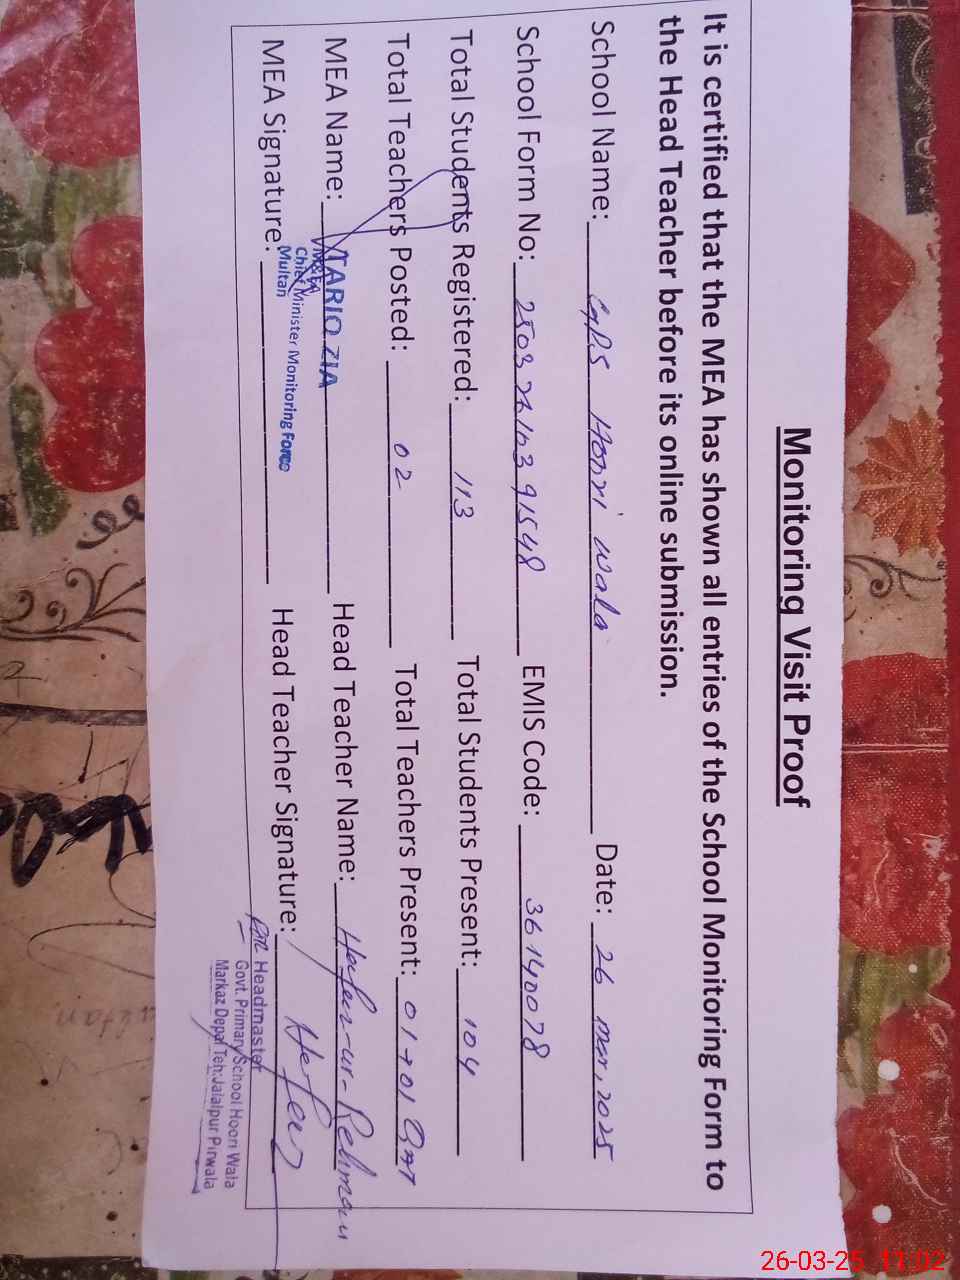 Monitoring Visit Proof
It is certified that the MEA has shown all entries of the School Monitoring Form to
the Head Teacher before its online submission.
School Name: GPS Hoori wala Date: 26 Mar, 2025
School Form No: 91548 EMIS Code: 36140078
Total Students Registered: 113 Total Students Present: 104
Total Teachers Posted: 02 Total Teachers Present: 01+01
MEA Name: TARIQ ZIA Head Teacher Name: Hafeez-ur-Rehman
MEA Signature: Head Teacher Signature: Hafeez
M&EA
Chief Minister Monitoring Force
Multan
Headmaster
Govt. Primary School Hoori Wala
Markaz Depal Teh:Jalalpur Pirwala
26-03-25 11:02